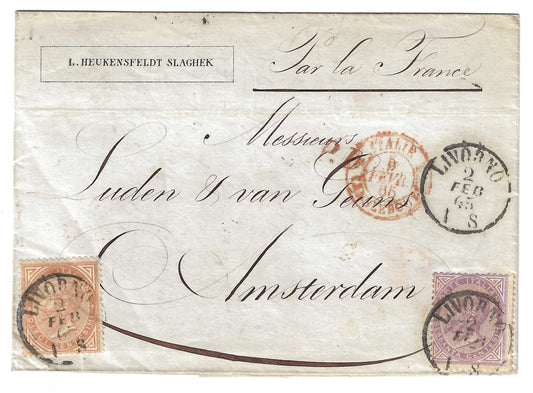 L. HEUKENSFELDT SLAGHEK
Par la France
Messieurs
ITALIE
FEVR
LIVORNO
2
FEB
65
1 S
Luden & van Geuns
Amsterdam
LIVORNO
2
FEB
1 S
LIVORNO
2
FEB
1 S